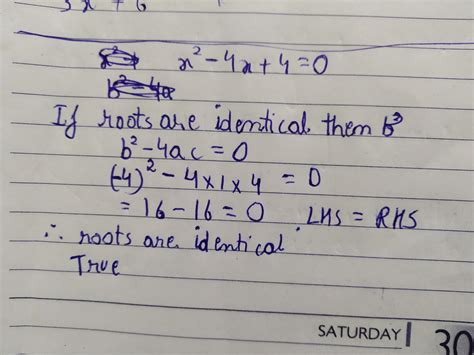 x² - 4x + 4 = 0
b² - 4a
If roots are identical then b³
b² - 4ac = 0
(-4)² - 4 x 1 x 4 = 0
= 16 - 16 = 0 LHS = RHS
∴ roots are identical
True
SATURDAY 30